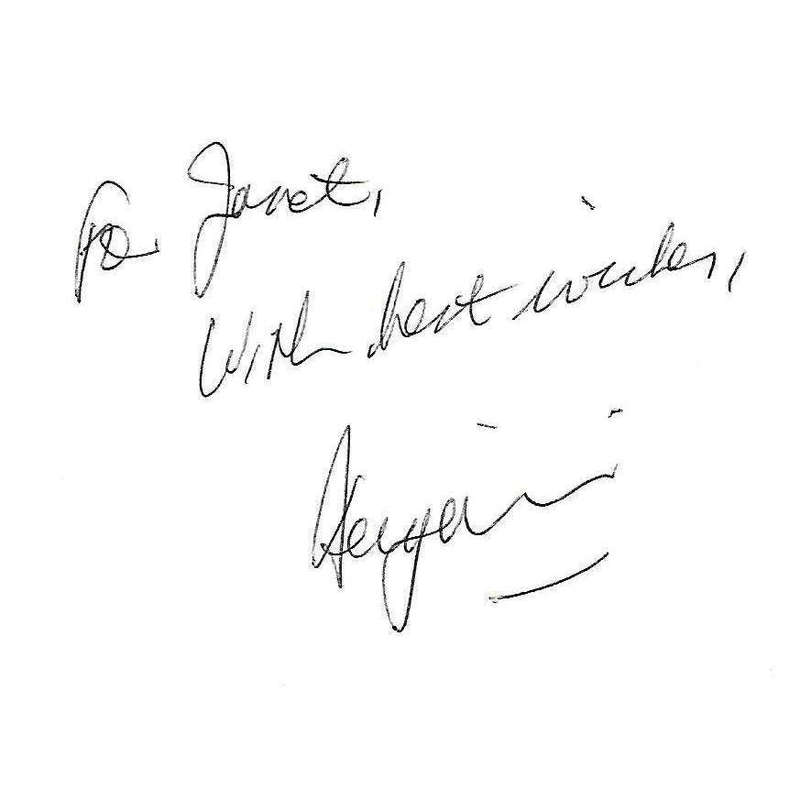 For Janet,
With best wishes,